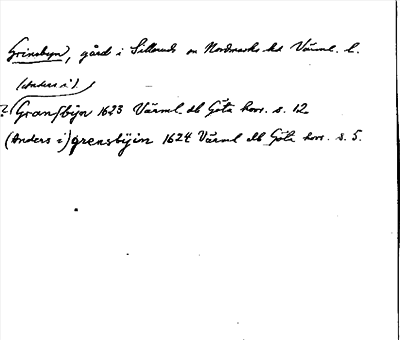 Grinsbyn, gård i Silleruds sn Nordmarks hd Värml. l.
(Anders i)
? Gransbÿn 1623 Värml. db Göta hovr. s. 12
(Anders i) grensbÿin 1624 Värml db Göta hovr. s. 5.